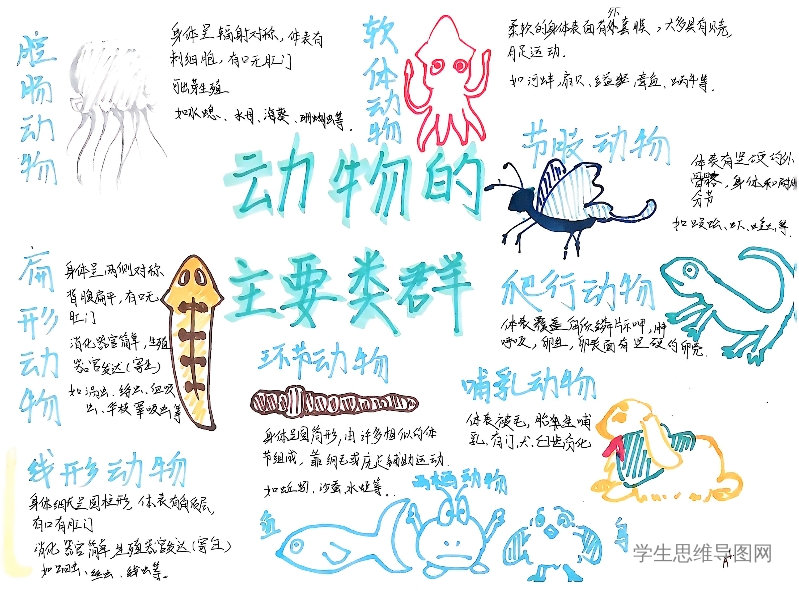 动物的
主要类群
腔肠动物
身体呈辐射对称，体表有
刺细胞，有口无肛门
如水螅、水母、海葵、珊瑚虫等。
软体动物
柔软的身体表面有外套膜，大多具有贝壳
足运动.
如河蚌，扇贝、蜗牛等.
节肢动物
体表有坚硬的外
骨骼，身体和
分节
扁形动物
身体呈两侧对称
背腹扁平，有口无
肛门
消化器官简单，生殖
器官发达(寄生)
如涡虫、绦虫、血吸
虫、华枝睾吸虫等
爬行动物
体表覆盖角质鳞片或甲，肺
呼吸，卵生，卵表面有坚硬的卵壳.
环节动物
身体呈圆筒形，由许多相似的体
节组成，靠刚毛或疣足辅助运动.
如蚯蚓、沙蚕、水蛭等.
哺乳动物
体表被毛，胎生哺
乳，有门、犬、臼齿分化
线形动物
身体细长呈圆柱形 体表有角质层
有口有肛门
消化器官简单，生殖器官发达(寄生)
如蛔虫、蛲虫、线虫等。
鱼
两栖动物
鸟
学生思维导图网